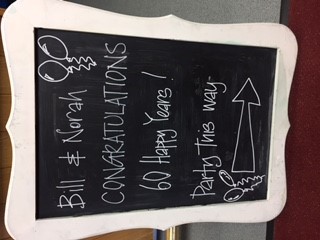 Bill & Norah
CONGRATULATIONS
60 Happy Years!
Party this way-